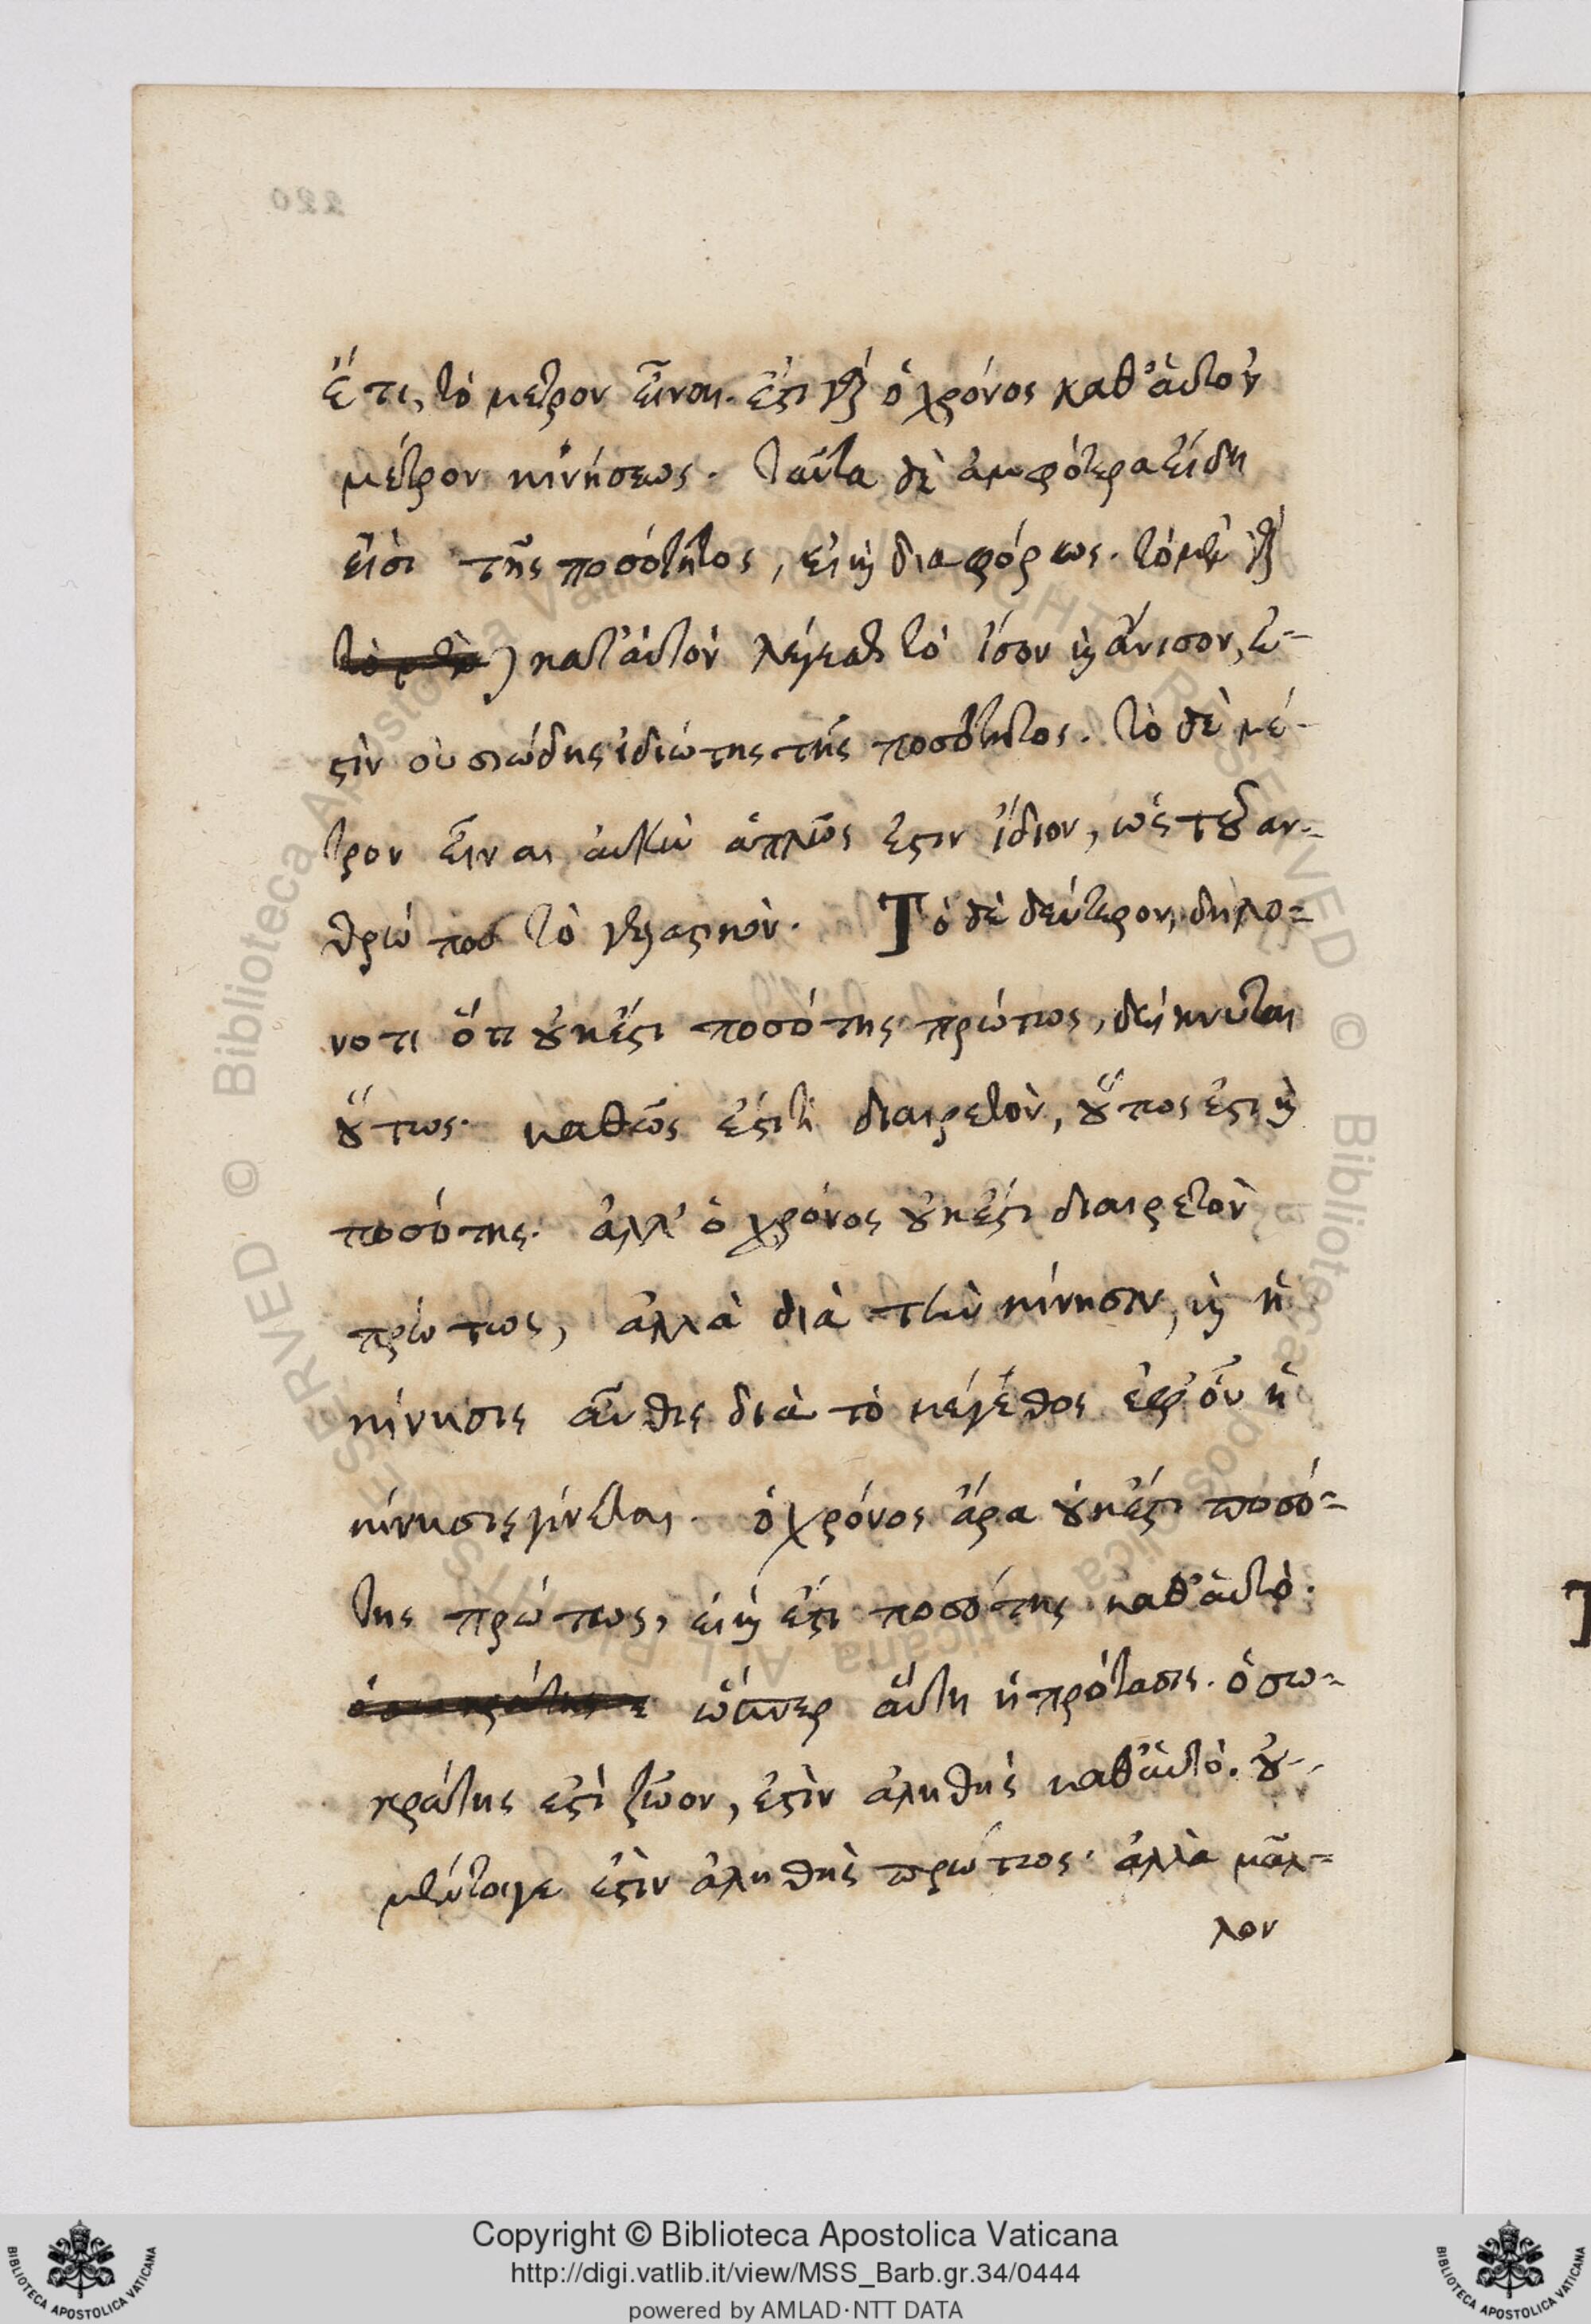 ἔτι, τὸ μέτρον εἶναι. ἔστι γὰρ ὁ χρόνος καθ' αὑτὸν
μέτρον κινήσεως. ταῦτα δὲ ἀμφότερα εἴδη
εἰσὶ τῆς ποσότητος, εἰ καὶ διαφόρως. τὸ μὲν γὰρ
κατ' αὐτὸν λέγεσθαι τὸ ἴσον καὶ ἄνισον, ἐ-
στὶν οὐσιώδης ἰδιώτης τῆς ποσότητος. τὸ δὲ μέ-
τρον εἶναι αὐτῇ ἁπλῶς ἐστιν ἴδιον, ὡς τοῦ ἀν-
θρώπου τὸ γελαστικὸν. Τὸ δὲ δεύτερον, δηλο-
νοτι ὅτι οὐκ ἔστι ποσότης πρώτως, δείκνυται
οὕτως. καθὼς ἐστί τι διαιρετὸν, οὕτως ἐστι καὶ
ποσότης. ἀλλ' ὁ χρόνος οὐκ ἔστι διαιρετὸν
πρώτως, ἀλλὰ διὰ τὴν κίνησιν, καὶ ἡ
κίνησις αὖθις διὰ τὸ μέγεθος ἐφ' ὃν ἡ
κίνησις γίνεται. ὁ χρόνος ἄρα οὐκ ἔστι ποσό-
της πρώτως, εἰ καὶ ἔστι ποσότης καθ' αὑτό.
ὥσπερ αὕτη ἡ πρότασις. ὁ σω-
κράτης ἐστὶ ζῶον, ἐστὶν ἀληθὴς καθ' αὑτὸ. οὐ
μέντοιγε ἐστὶν ἀληθὴς πρώτως. ἀλλὰ μᾶλ-
λον
220
Copyright © Biblioteca Apostolica Vaticana
http://digi.vatlib.it/view/MSS_Barb.gr.34/0444
powered by AMLAD·NTT DATA